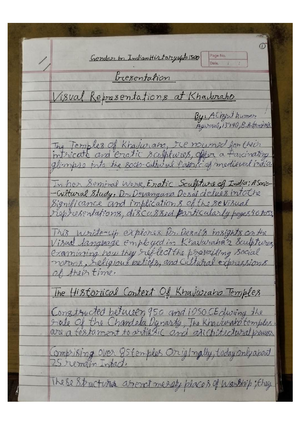 Gender in Indian History upto 1500
Presentation
Visual Representations at Khajuraho
By: Kumar
The Temples of Khajuraho, renowned for their
intricate and erotic sculptures, offer a fascinating
glimpse into the socio-cultural fabric of medieval India
In her seminal work, Erotic Sculpture of India: A Socio
-Cultural Study, Dr. Devangana Desai delves into the
significance and implications of these visual
representations, discussed particularly pages
This write-up explores Dr. Desai's insights on the
visual language employed in Khajuraho's sculptures,
examining how they reflect the prevailing social
mores, religious beliefs, and cultural expressions
of their time.
The Historical Context Of Khajuraho Temples
Constructed between 950 and 1050 CE during the
rule of the Chandela Dynasty, The Khajuraho temples
are a testament to artistic and architectural prowess.
Comprising over 85 temples originally, today only about
25 remain intact.
These structures are not merely places of worship; they